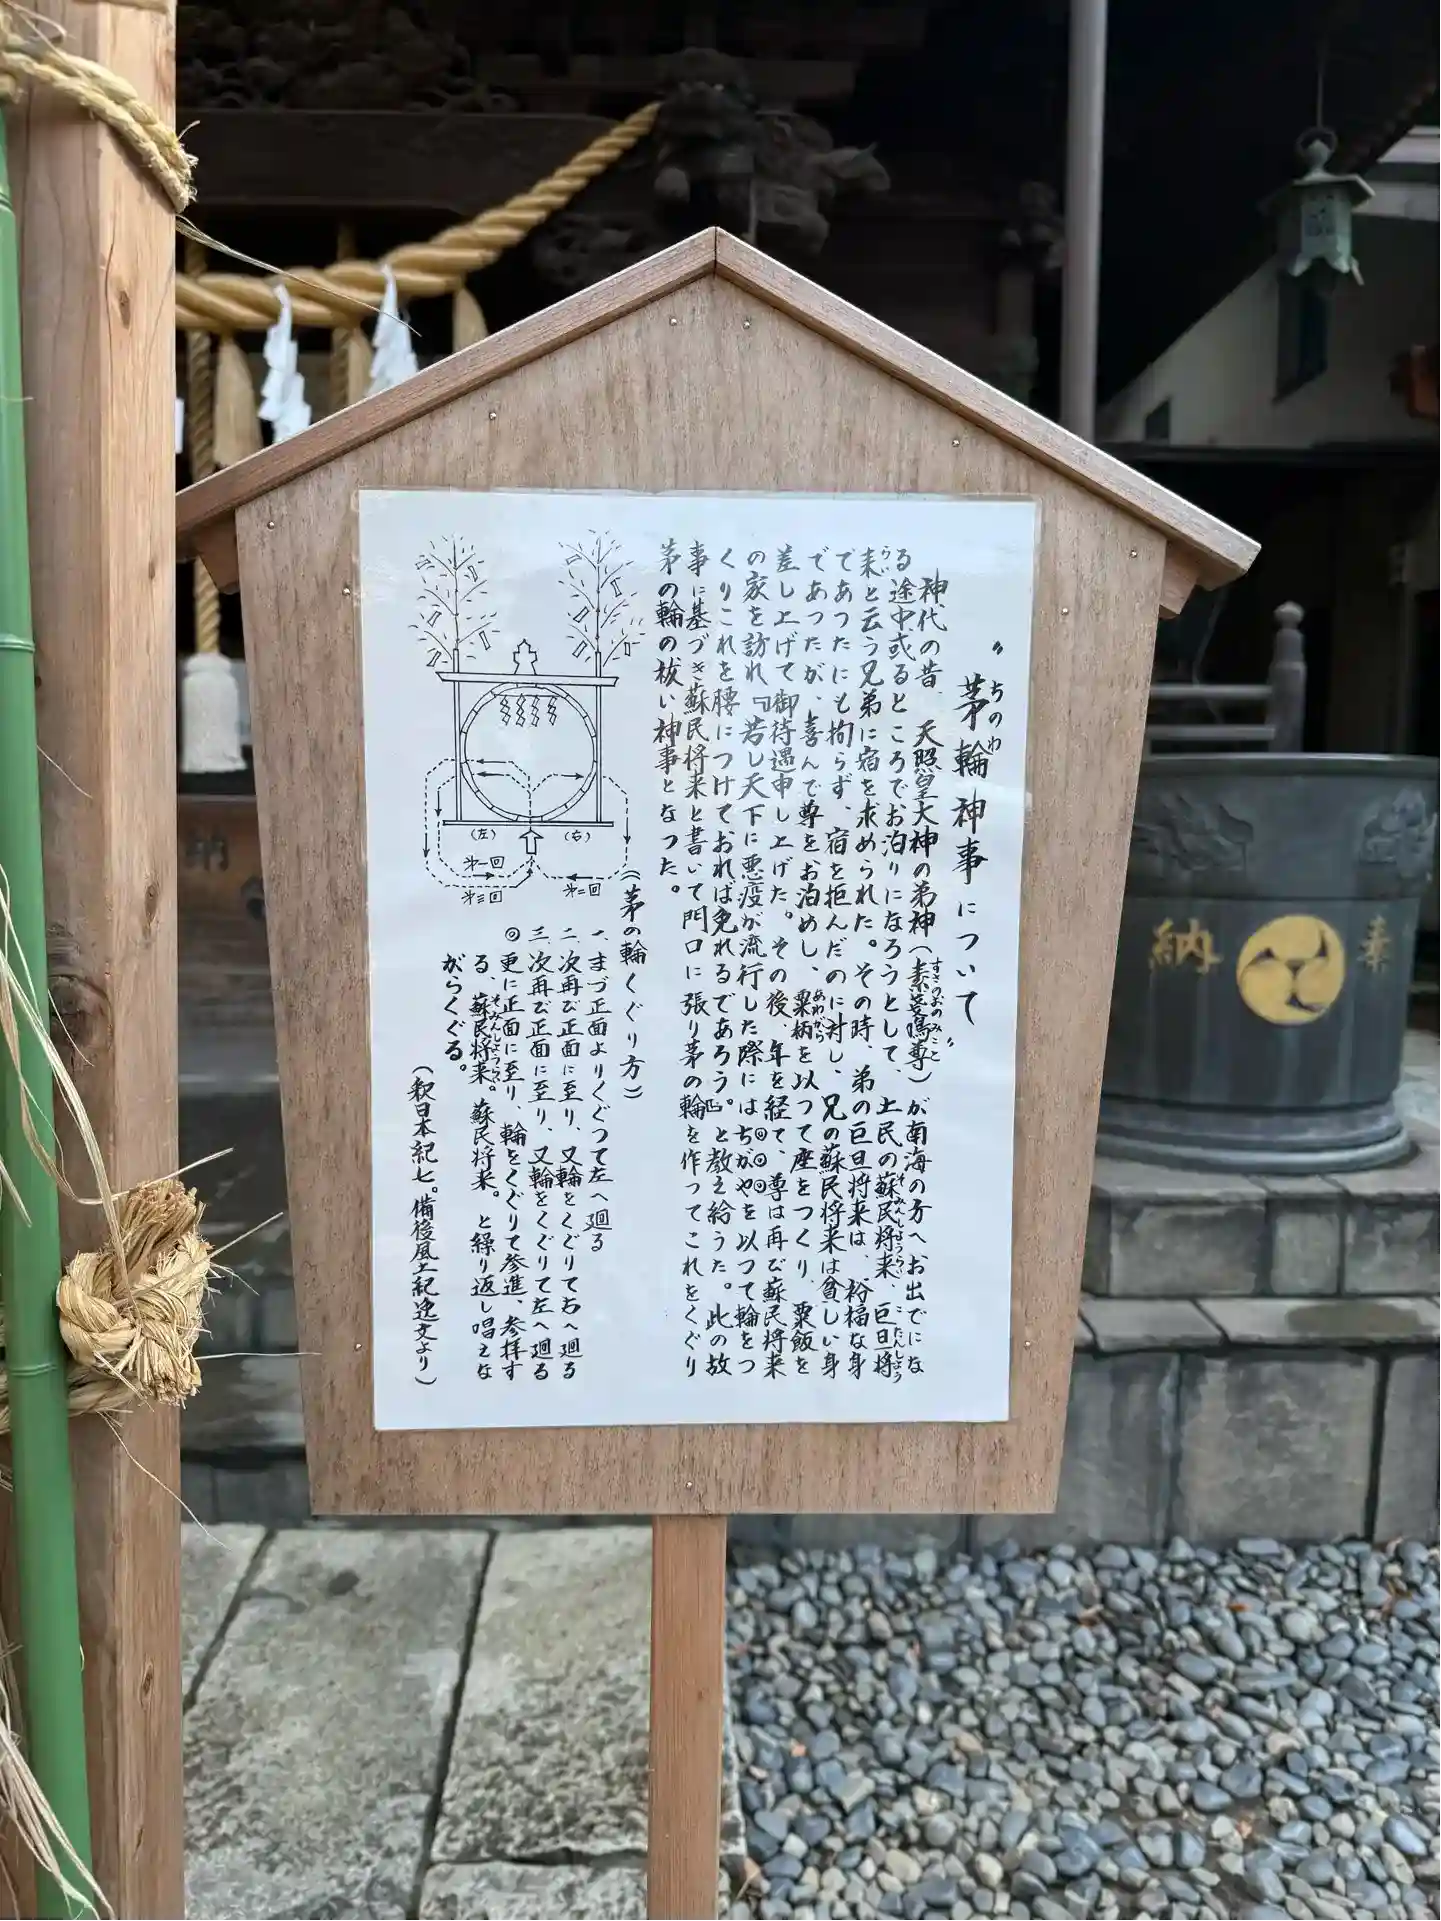 〝茅輪神事について〟
ちのわ
神代の昔、天照皇大神の弟神(素菩鳴尊)が南海の方へお出でにな
すさのおのみこと
る途中或るところでお泊りになろうとして、土民の蘇民将来、巨旦将
そみんしょうらい
こたんしょう
来と云う兄弟に宿を求められた。その時、弟の巨旦将来は、裕福な身
らい
であつたにも拘らず、宿を拒んだのに対し、兄の蘇民将来は貧しい身
であつたが、喜んで尊をお泊めし、粟柄を以つて座をつくり、粟飯を
あわがら
差し上げて御待遇申し上げた。その後、年を経て、尊は再び蘇民将来
の家を訪れ『若し天下に悪疫が流行した際にはちがやを以つて輪をつ
くりこれを腰につけておれば免れるであろう。』と教え給うた。此の故
事に基づき蘇民将来と書いて門口に張り茅の輪を作ってこれをくぐり
茅の輪の祓い神事となつた。
(左)
(右)
第一回
第二回
第三回
(茅の輪くぐり方)
一、まづ正面よりくぐつて左へ廻る
二、次再び正面に至り、又輪をくぐりて右へ廻る
三、次再び正面に至り、又輪をくぐりて左へ廻る
◎更に正面に至り、輪をくぐりて参進、参拝す
る、蘇民将来。蘇民将来。と繰り返し唱えな
そみんしょうらい
がらくぐる。
(釈日本紀七。備後風土紀逸文より)
奉
納